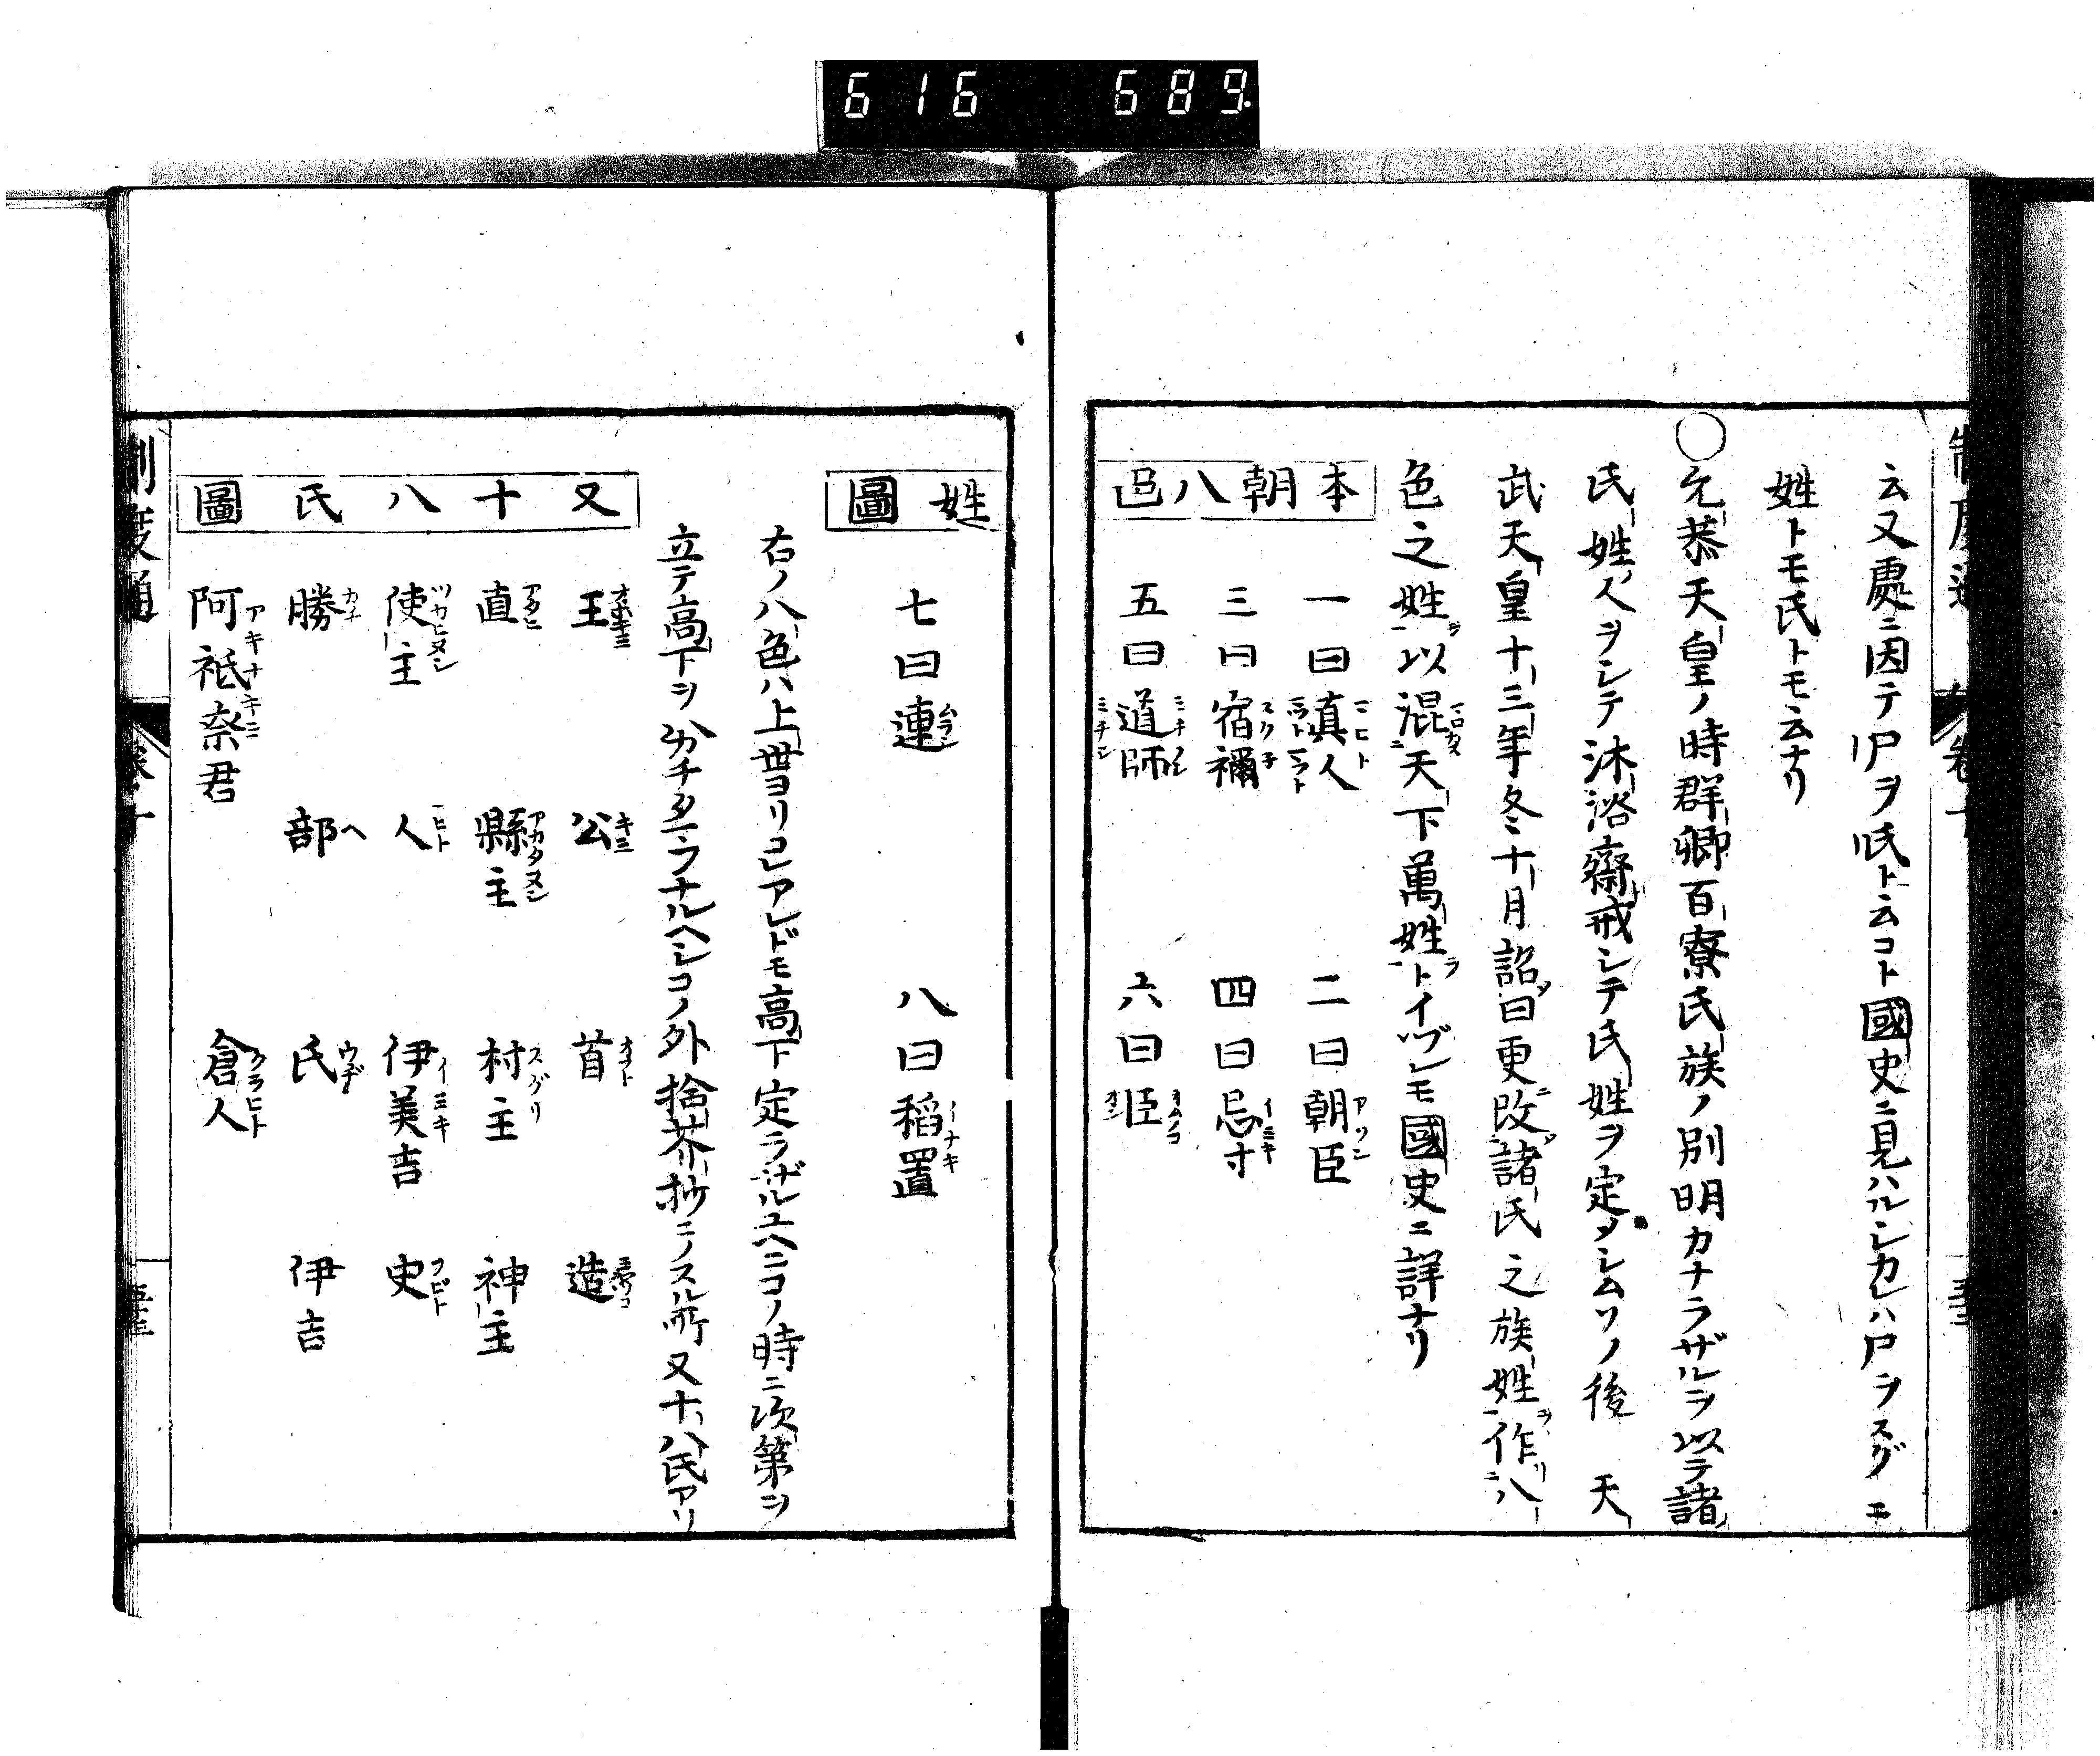 616 689
云又處ニ因テ尸ヲ氏ト云コト國史ニ見ハルシカレハ尸ヲスグニ
姓トモ氏トモ云ナリ
○允恭天皇ノ時群卿百寮氏族ノ別明カナラザルヲ以テ諸
氏姓ノ人ヲシテ沐浴齋戒シテ氏姓ヲ定メシムソノ後 天
武天皇十三年冬十月詔曰更改諸氏之族姓作八
色之姓以混天下萬姓トイヅレモ國史ニ詳ナリ
本朝八色
一曰真人 二曰朝臣
三曰宿禰 四曰忌寸
五曰道師 六曰臣
姓圖
七曰連 八曰稻置
右ノ八色ハ上世ヨリコレアレドモ高下定ラザルユヘニコノ時ニ次第ヲ
立テ高下ヲワカチタマフナルヘシコノ外拾芥抄ニノスル所又十八氏アリ
又十八氏圖
王 公 首 造
直 縣主 村主 神主
使主 人 伊美吉 史
勝 部 氏 伊吉
阿祗奈君 倉人
制度通 卷十